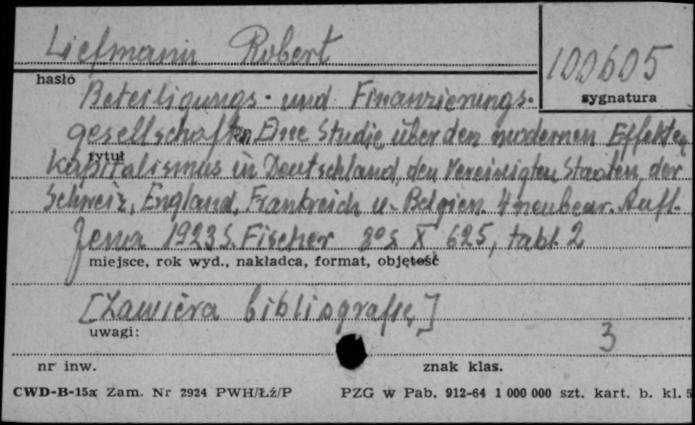 Liefmann Robert
100605
hasło
sygnatura
Beteiligungs- und Finanzierungs-
gesellschaften. Eine Studie über den modernen Effekten
tytuł
kapitalismus in Deutschland, den Vereinigten Staaten, der
Schweiz, England, Frankreich u. Belgien. 4 neubear. Aufl.
Jena 1923 S. Fischer 8° s X 625, tabl. 2
miejsce, rok wyd., nakładca, format, objętość
[Zawiera bibliografię]
uwagi:
3
nr inw. znak klas.
CWD-B-15a Zam. Nr 2924 PWH/Łź/P PZG w Pab. 912-64 1 000 000 szt. kart. b. kl. 5